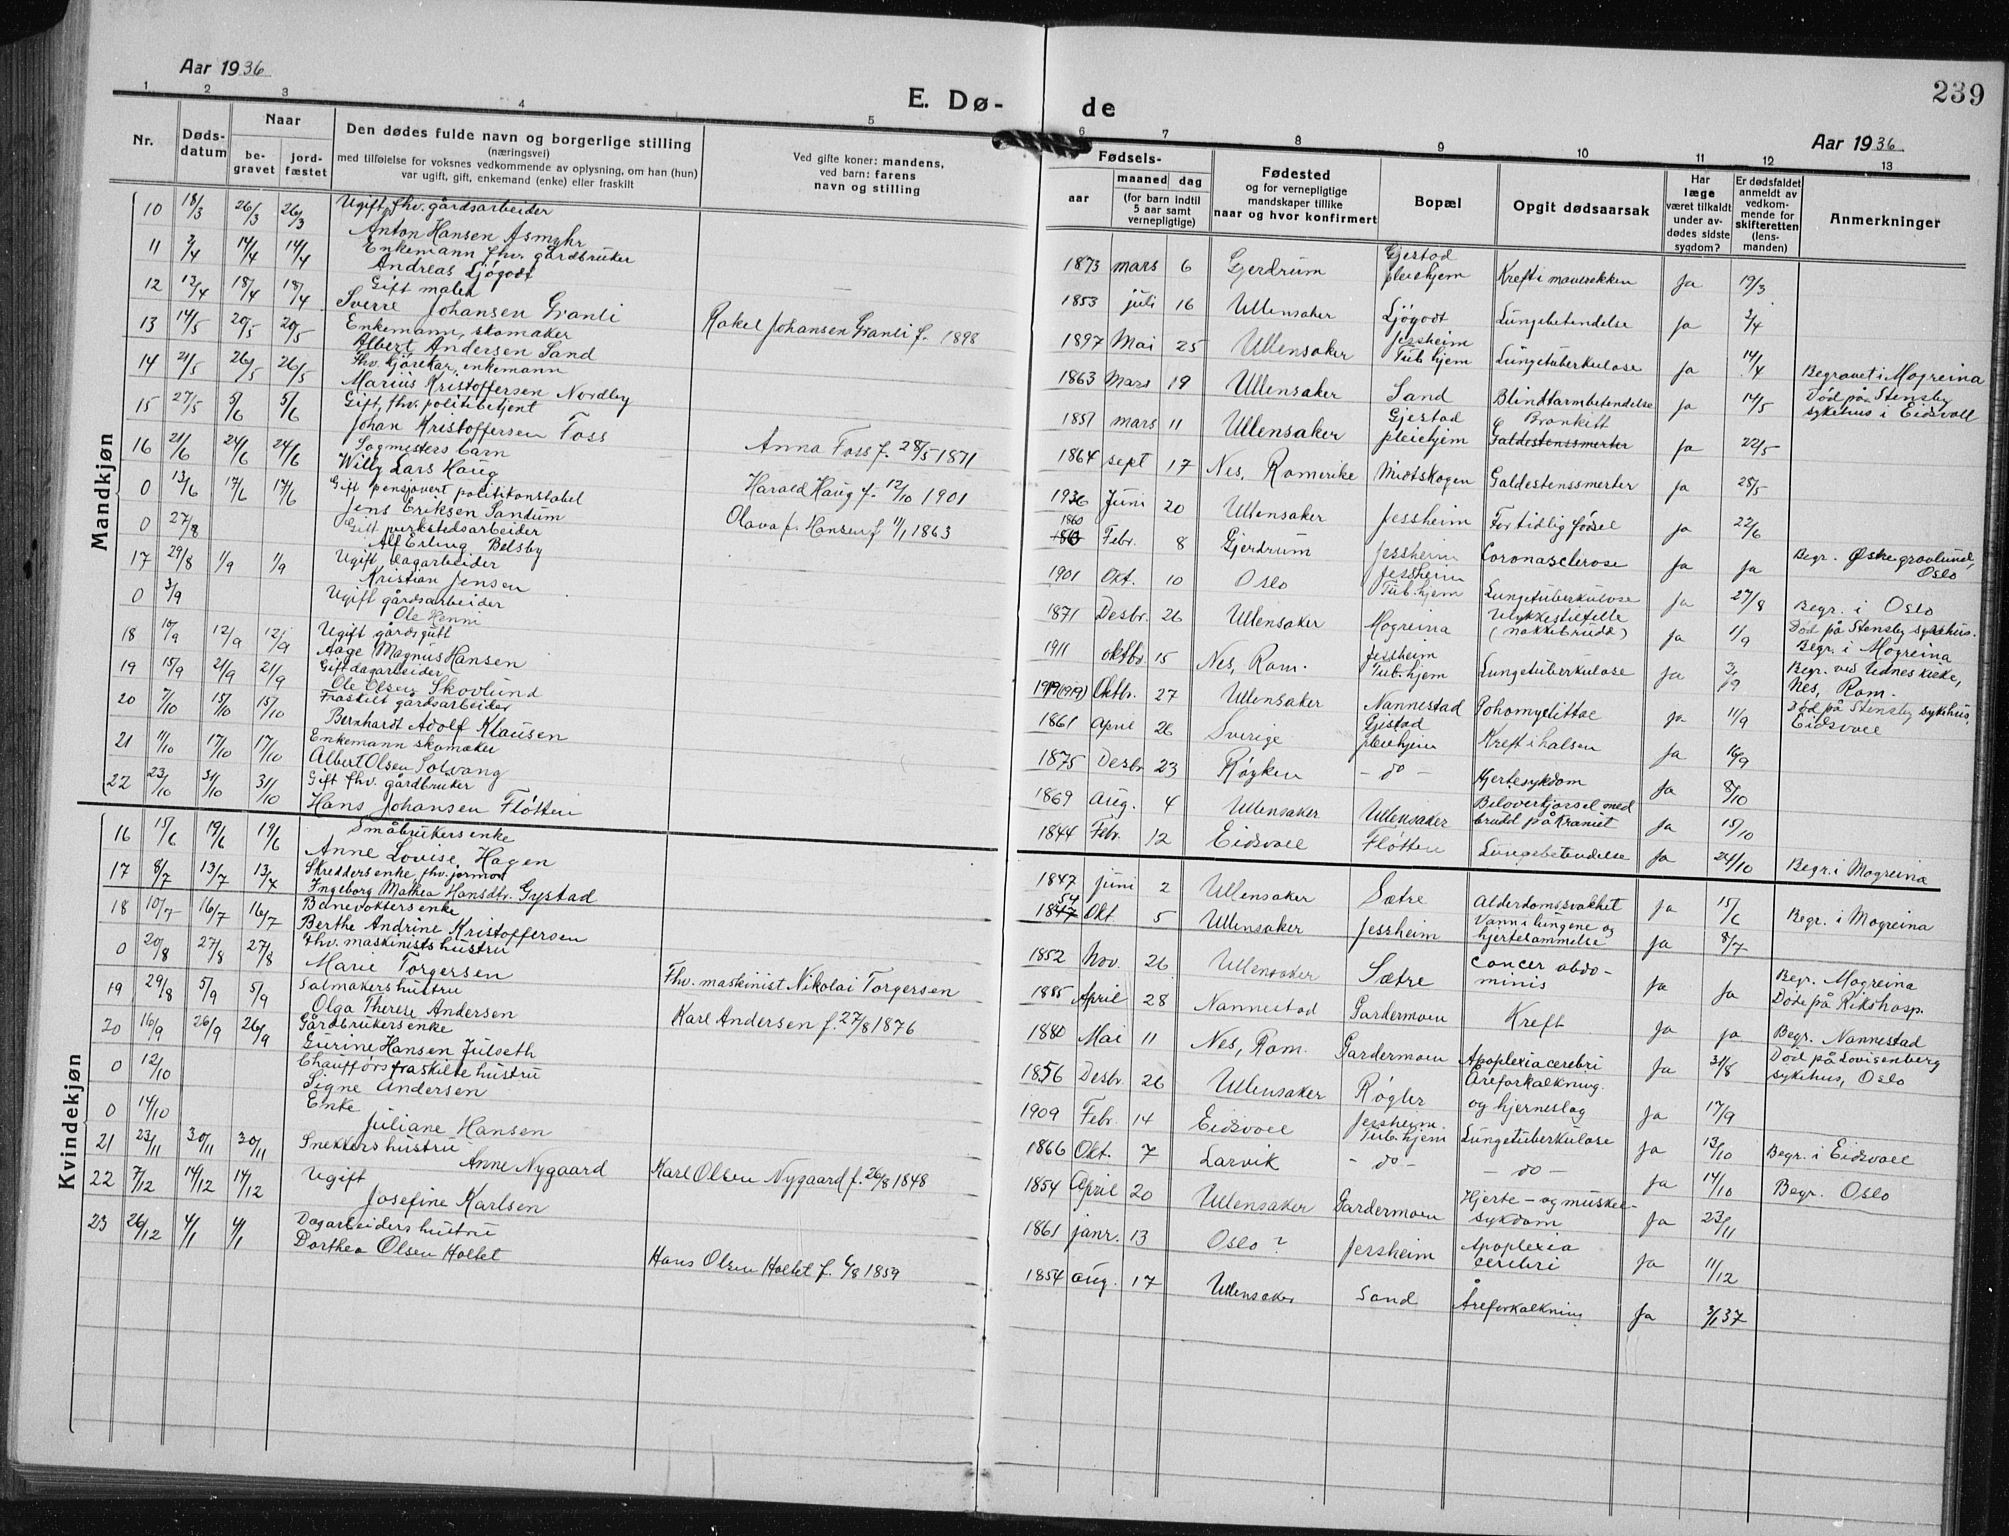 Aar 1936
E. Dø-
de
239
Aar 1936
1 2 3 4 5 6 7 8 9 10 11 12 13
Nr.
Døds-
datum
Naar
be-
gravet
jord-
fæstet
Den dødes fulde navn og borgerlige stilling
(næringsvei)
med tilføielse for voksnes vedkommende av oplysning, om han (hun)
var ugift, gift, enkemand (enke) eller fraskilt
Ved gifte koner: mandens,
ved barn: farens
navn og stilling
Fødsels-
aar
maaned
dag
(for barn indtil
5 aar samt
vernepligtige)
Fødested
og for vernepligtige
mandskaper tillike
naar og hvor konfirmert
Bopæl
Opgit dødsaarsak
Har
læge
været tilkaldt
under av-
dødes sidste
sygdom?
Er dødsfaldet
anmeldt av
vedkom-
mende for
skifteretten
(lens-
manden)
Anmerkninger
Mandkjøn
10 18/3 26/3 26/3 Ugift, fhv. gårdsarbeider
Anton Hansen Asmyhr
1873 mars 6 Gjerdrum Gjestad pleiehjem Kreft i mavesekken Ja 17/3
11 2/4 14/4 14/4 Enkemann fhv. gårdbruker
Andreas Ljøgodt
1853 juli 16 Ullensaker Ljøgodt Lungebetendelse Ja 3/4
12 12/4 18/4 18/4 Gift maler
Sverre Johansen Granli
Rakel Johansen Granli f. 1898
1897 Mai 25 Ullensaker Jessheim Tub.hjem Lungetuberkulose Ja 14/4 Begravet i Mogreina
13 14/5 20/5 20/5 Enkemann, skomaker
Albert Andersen Sand
1863 Mars 19 Ullensaker Sand Blindtarmbetendelse Ja 14/5 Død på Stensby sykehus i Eidsvoll
14 21/5 26/5 26/5 Fhv. kjørekar, enkemann
Marius Kristoffersen Nordby
1851 mars 11 Ullensaker Gjestad pleiehjem Bronkitt Galdestenssmerter Ja 22/5
15 27/5 5/6 5/6 Gift, fhv. politibetjent
Johan Kristoffersen Foss
Anna Foss f. 28/5 1871
1864 sept 17 Nes, Romerike Midtskogen Galdestenssmerter Ja 28/5
16 21/6 24/6 24/6 Sagmesters barn
Willy Lars Haug
Harald Haug f. 12/10 1901
1936 Juni 20 Ullensaker Jessheim For tidlig fødsel Ja 22/6
0 13/6 17/6 17/6 Gift pensjonert politikonstabel
Jens Eriksen Sandum
Olava f. Hansen f 11/1 1863
1860 1863 Febr. 8 Gjerdrum Jessheim Coronasclerose Ja Ja Begr. Østregravlund, Oslo
0 27/8 Gift verkstedsarbeider
Alf Erling Belsby
1901 Okt. 10 Oslo Jessheim Tub.hjem Lungetuberkulose Ja 27/8 Begr. i Oslo
17 29/8 1/9 1/9 Ugift, dagarbeider
Kristian Jensen
1871 Desbr. 26 Ullensaker Mogreina Ulykkestilfelle (nakkebrudd) Ja 1/9 Død på Stensby sykehus. Begr. i Mogreina
0 3/9 Ugift gårdsarbeider
Ole Henni
1911 oktbr 15 Nes, Rom. Jessheim Tub.hjem Lungetuberkulose Ja 3/9 Begr. ved Udnes kirke, Nes, Rom.
18 10/9 12/9 12/9 Ugift gårdsgutt
Aage Magnus Hansen
1919 (1919) Oktbr. 27 Ullensaker Nannestad Pohomyelittae Ja 11/9 Død på Stensby sykehus, Eidsvoll
19 15/9 21/9 21/9 Gift dagarbeider
Ole Olsen Skovlund
1861 April 26 Sverige Gjestad pleiehjem Kreft i halsen Ja 16/9
20 7/10 15/10 15/10 Fraskilt gårdsarbeider
Bernhardt Adolf Klausen
1875 Desbr 23 Røyken - do - Hjertesykdom Ja 8/10
21 11/10 17/10 17/10 Enkemann skomaker
Albert Olsen Solvang
1869 Aug. 4 Ullensaker Ullensaker Biloverkjørsel med brudd på kraniet Ja 15/10
22 23/10 31/10 31/10 Gift fhv. gårdbruker
Hans Johansen Fløtten
1844 Febr. 12 Eidsvoll Fløtten Lungebetendelse Ja 24/10 Begr. i Mogreina
Kvindekjøn
16 15/6 19/6 19/6 Småbrukers enke
Anne Lovise Hagen
1847 juni 2 Ullensaker Sætre Alderdomssvakhet Ja 15/6 Begr. i Mogreina
17 8/7 13/7 13/7 Skredders enke, fhv. jormor
Ingeborg Mathea Hansdtr. Gystad
54 1847 Okt 5 Ullensaker Jessheim Vann i lungene og hjertelammelse Ja 8/7
18 10/7 16/7 16/7 Banevokters enke
Berthe Andrine Kristoffersen
1852 Nov. 26 Ullensaker Sætre Cancer abdo-minis Ja Ja Begr. Mogreina
0 20/8 27/8 27/8 Fhv. maskinists hustru
Marie Torgersen
Fhv. maskinist Nikolai Torgersen
1885 April 28 Nannestad Gardermoen Kreft Ja Ja Døde på Rikshosp. Begr. Nannestad
19 29/8 5/9 5/9 Salmakers hustru
Olga Therese Andersen
Karl Andersen f. 27/8 1876
1880 Mai 11 Nes, Rom. Gardermoen Apoplexia cerebri Ja 31/8 Død på Lovisenberg sykehus, Oslo
20 16/9 26/9 26/9 Gårdbrukers enke
Gurine Hansen Julseth
1856 Desbr 26 Ullensaker Røgler Åreforkalkning og hjerneslag Ja 17/9
0 12/10 Chaufførs fraskilte hustru
Signe Andersen
1909 Febr. 14 Eidsvoll Jessheim. Tub.hjem Lungetuberkulose Ja 13/10 Begr. i Eidsvoll
0 14/10 Enke
Juliane Hansen
1866 Okt. 7 Larvik - do - - do - Ja 14/10 Begr. Oslo
21 23/11 30/11 30/11 Snekkers hustru
Anne Nygaard
Karl Olsen Nygaard f. 26/8 1848
1854 April 20 Ullensaker Gardermoen Hjerte- og muskel-sykdom Ja 23/11
22 7/12 14/12 14/12 Ugift
Josefine Karlsen
1861 janr. 13 Oslo? Jessheim Apoplexia cerebri Ja 11/12
23 26/12 4/1 4/1 Dagarbeiders hustru
Dorthea Olsen Holtet
Hans Olsen Holtet f. 6/8 1859
1854 aug. 17 Ullensaker Sand Åreforkalkning Ja 3/1 37